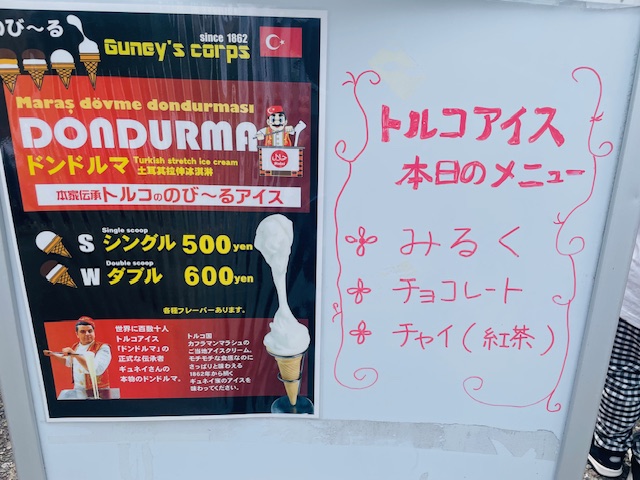 のび～る
since 1862
Guney's corps
Maraş dövme dondurması
DONDURMA
ドンドルマ
Turkish stretch ice cream
土耳其拉伸冰淇淋
本家伝承トルコののび～るアイス
Single scoop
S シングル 500yen
Double scoop
W ダブル 600yen
各種フレーバーあります。
世界に百数十人
トルコアイス
「ドンドルマ」の
正式な伝承者
ギュネイさんの
本物のドンドルマ。
トルコ国
カフラマンマラシュの
ご当地アイスクリーム。
モチモチな食感なのに
さっぱりと味わえる
1862年から続く
ギュネイ家のアイスを
味わってください。
トルコアイス
本日のメニュー
みるく
チョコレート
チャイ(紅茶)